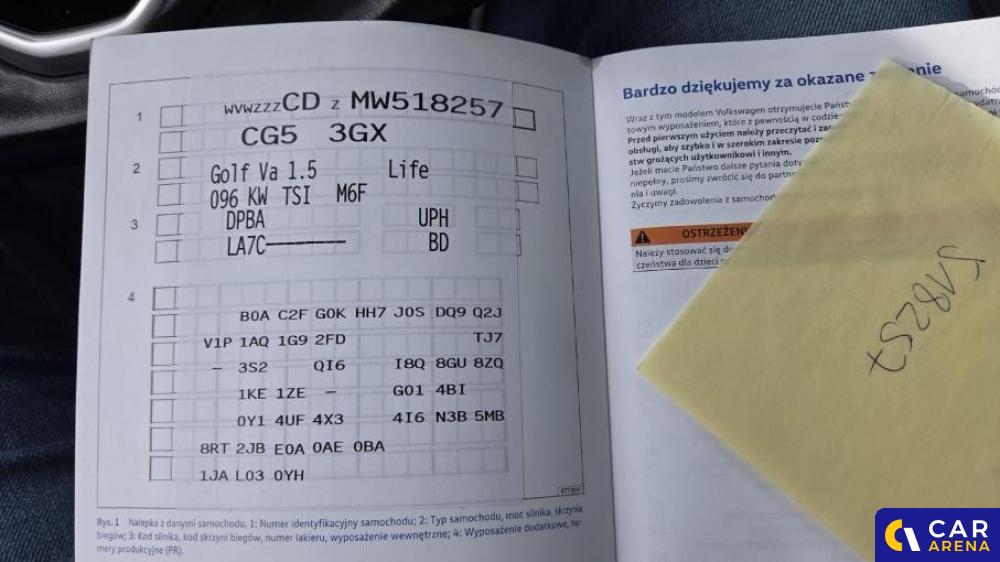 1
WVWZZZCD Z MW518257
CG5 3GX
2
Golf Va 1.5 Life
096 KW TSI M6F
3
DPBA UPH
LA7C-------- BD
4
B0A C2F G0K HH7 J0S DQ9 Q2J
V1P 1AQ 1G9 2FD TJ7
– 3S2 QI6 I8Q 8GU 8ZQ
1KE 1ZE – G01 4BI
0Y1 4UF 4X3 4I6 N3B 5MB
8RT 2JB E0A 0AE 0BA
1JA L03 0YH
Rys. 1 Nalepka z danymi samochodu. 1: Numer identyfikacyjny samochodu; 2: Typ samochodu, moc silnika, skrzynia
biegów; 3: Kod silnika, kod skrzyni biegów, numer lakieru, wyposażenie wewnętrzne; 4: Wyposażenie dodatkowe, nu-
mery produkcyjne (PR).
Bardzo dziękujemy za okazane
Wraz z tym modelem Volkswagen otrzymujecie samochód
towym wyposażeniem, które z pewnością w
Przed pierwszym użyciem należy przeczytać i
obsługi, aby szybko i w szerokim zakresie
stw grożących użytkownikowi i innym.
Jeżeli macie Państwo dalsze pytania
niepełny, prosimy zwrócić się do
nia i uwagi.
Życzymy zadowolenia z
Należy stosować się
czeństwa dla dzieci
CAR
ARENA